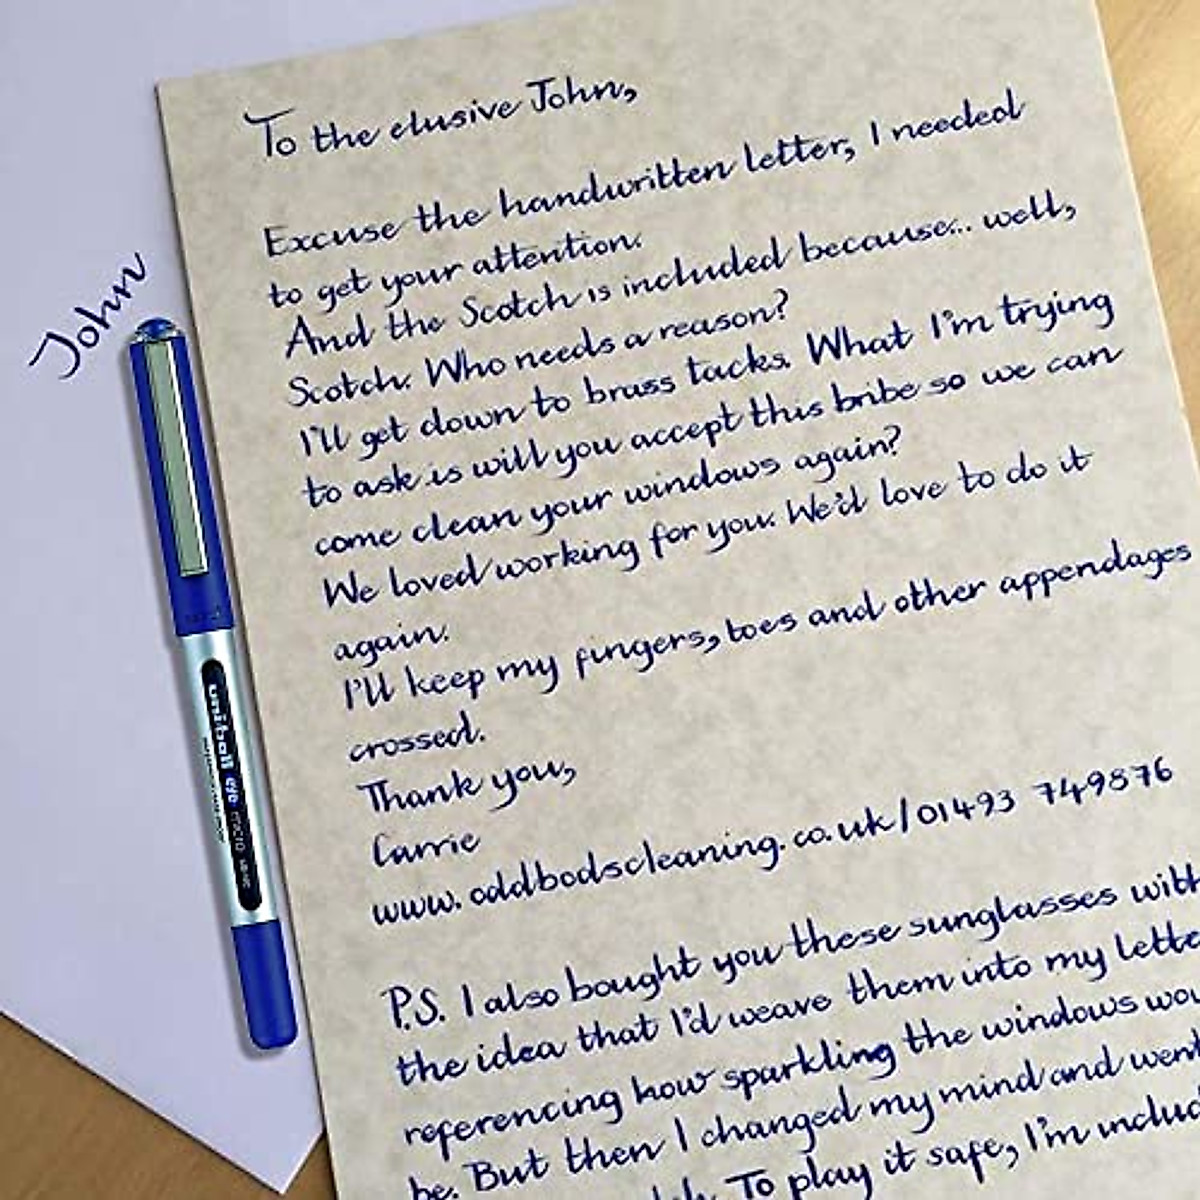 To the elusive John,
Excuse the handwritten letter, I needed
to get your attention.
And the Scotch is included because... well,
Scotch. Who needs a reason?
I'll get down to brass tacks. What I'm trying
to ask is will you accept this bribe so we can
come clean your windows again?
We loved working for you. We'd love to do it
again.
I'll keep my fingers, toes and other appendages
crossed.
Thank you,
Carrie
www.oddbodscleaning.co.uk/01493 749876
P.S. I also bought you these sunglasses with
the idea that I'd weave them into my lette
referencing how sparkling the windows wou
be. But then I changed my mind and went
To play it safe, I'm includ
John
uniball eye micro